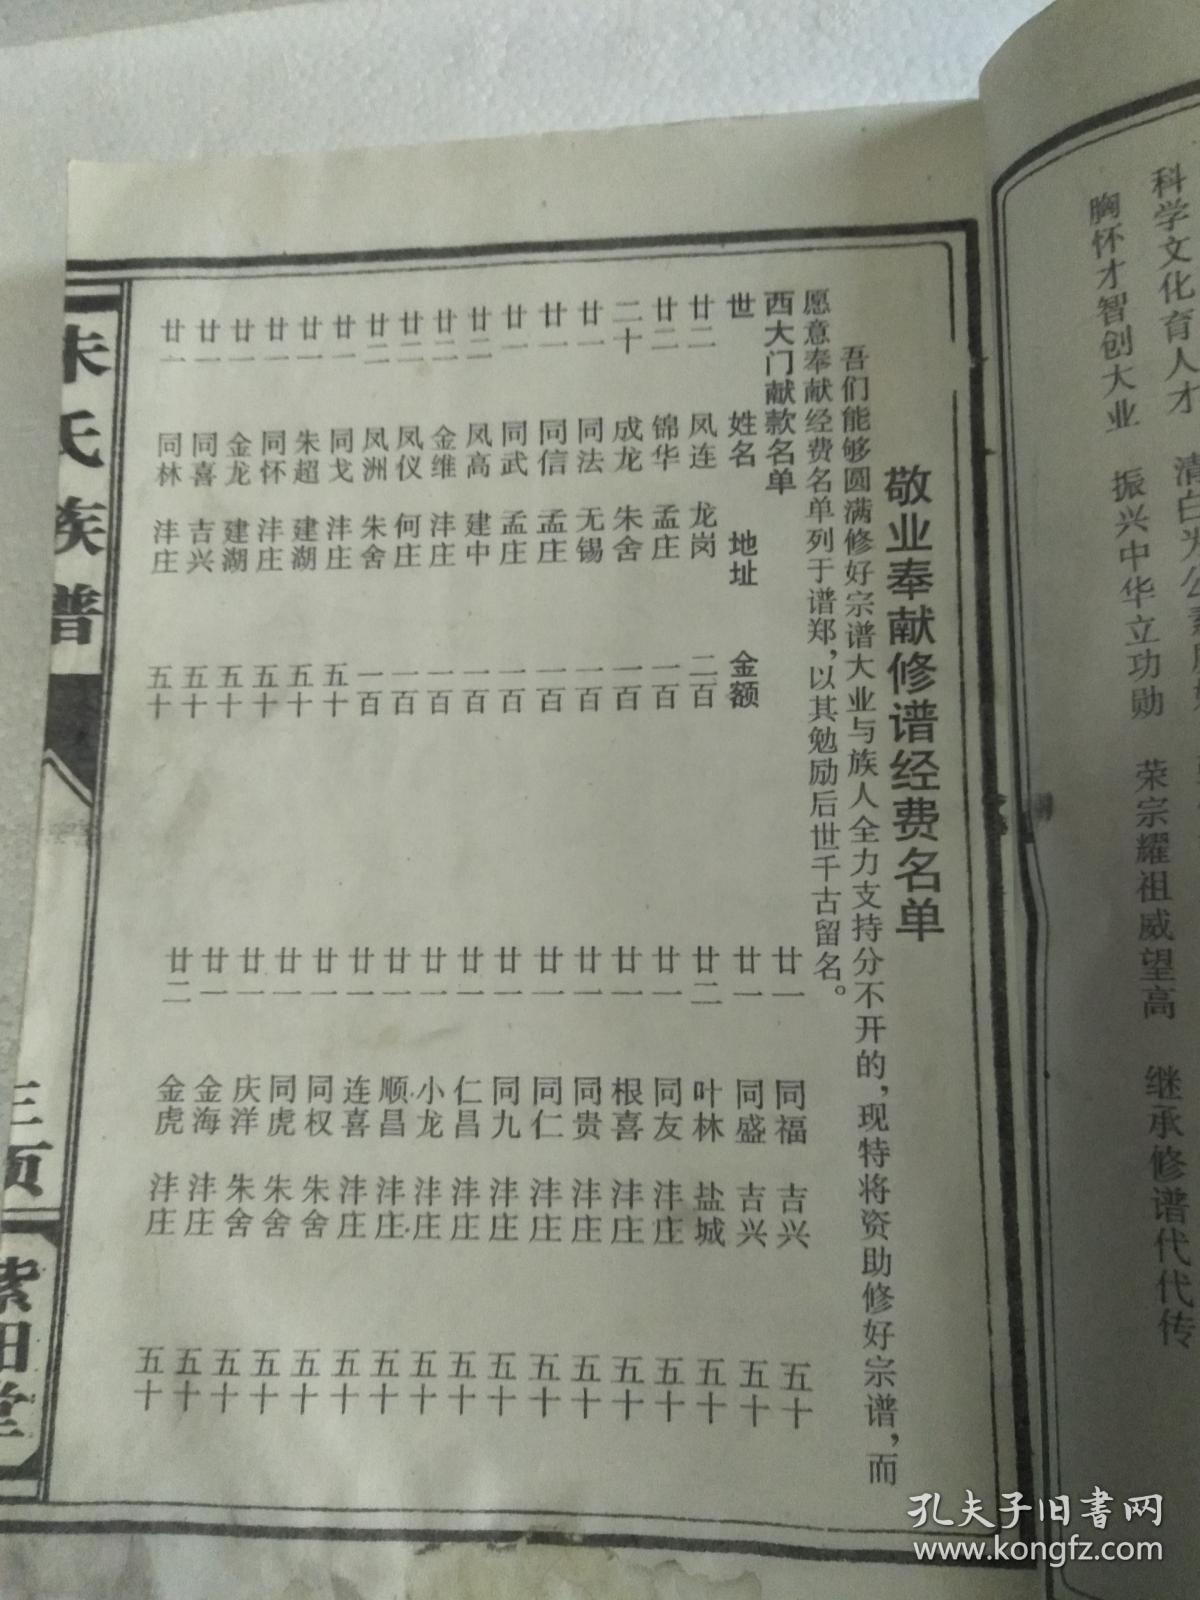 科学文化育人才 清白为公
胸怀才智创大业 振兴中华立功勋 荣宗耀祖威望高 继承修谱代代传
敬业奉献修谱经费名单
吾们能够圆满修好宗谱大业与族人全力支持分不开的，现特将资助修好宗谱，而
愿意奉献经费名单列于谱郑，以其勉励后世千古留名。
西大门献款名单
世 姓名 地址 金额
廿二 凤连 龙岗 二百
廿二 锦华 孟庄 一百
二十 成龙 朱舍 一百
廿一 同法 无锡 一百
廿一 同信 孟庄 一百
廿一 同武 孟庄 一百
廿二 凤高 建中 一百
廿二 金维 沣庄 一百
廿二 凤仪 何庄 一百
廿二 凤洲 朱舍 一百
廿一 同戈 沣庄 五十
廿一 朱超 建湖 五十
廿一 同怀 沣庄 五十
廿一 金龙 建湖 五十
廿一 同喜 吉兴 五十
廿一 同林 沣庄 五十
廿一 同福 吉兴 五十
廿一 同盛 吉兴 五十
廿二 叶林 盐城 五十
廿一 同友 沣庄 五十
廿一 根喜 沣庄 五十
廿一 同贵 沣庄 五十
廿一 同仁 沣庄 五十
廿一 同九 沣庄 五十
廿一 仁昌 沣庄 五十
廿一 小龙 沣庄 五十
廿一 顺昌 沣庄 五十
廿一 连喜 沣庄 五十
廿一 同权 朱舍 五十
廿一 同虎 朱舍 五十
廿一 庆洋 朱舍 五十
廿一 金海 沣庄 五十
廿二 金虎 沣庄 五十
朱氏族谱
三项
紫阳堂
孔夫子旧书网
www.kongfz.com